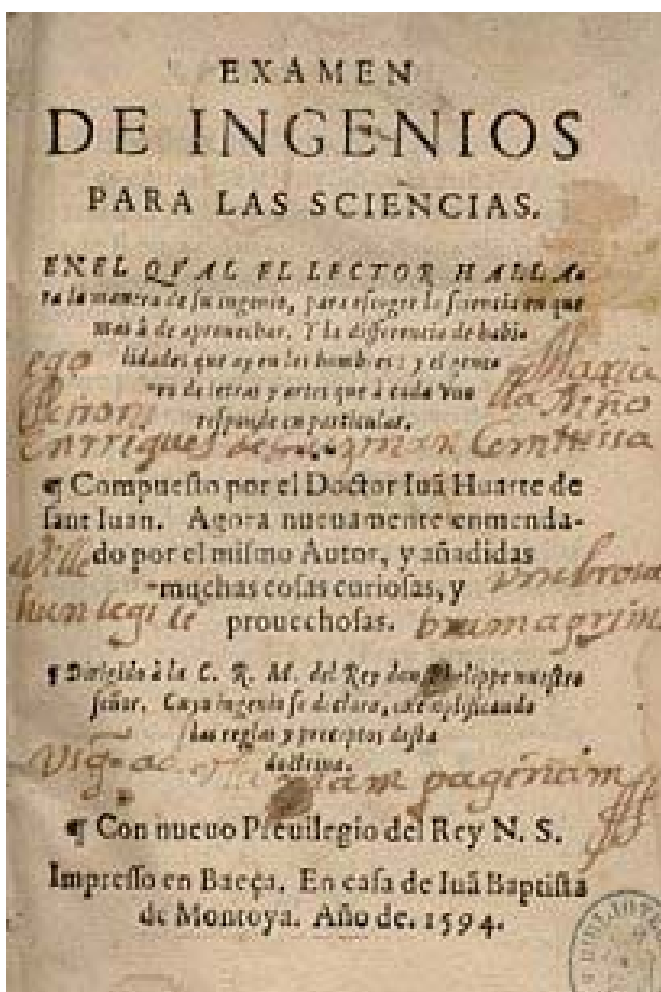 EXAMEN
DE INGENIOS
PARA LAS SCIENCIAS.
EN EL QVAL EL LECTOR HALLA-
ra la manera de su ingenio, para escoger la sciencia en que
mas à de aprouechar. Y la differencia de habi-
lidades que ay en los hombres: y el gene-
ro de letras y artes que à cada vno
responde en particular.
ego Maria
de Niño
Enrriques de guzman
¶ Compuesto por el Doctor Iuā Huarte de
sant Iuan. Agora nueuamente enmenda-
do por el mismo Autor, y añadidas
muchas cosas curiosas, y
prouechosas.
hun legi
¶ Dirigido à la C. R. M. del Rey don Phelippe nuestro
señor. Cuyo ingenio se declara, exemplificando
las reglas y preceptos desta
doctrina.
paginam
¶ Con nueuo Preuilegio del Rey N. S.
Impresso en Baeça. En casa de Iuā Baptista
de Montoya. Año de. 1594.